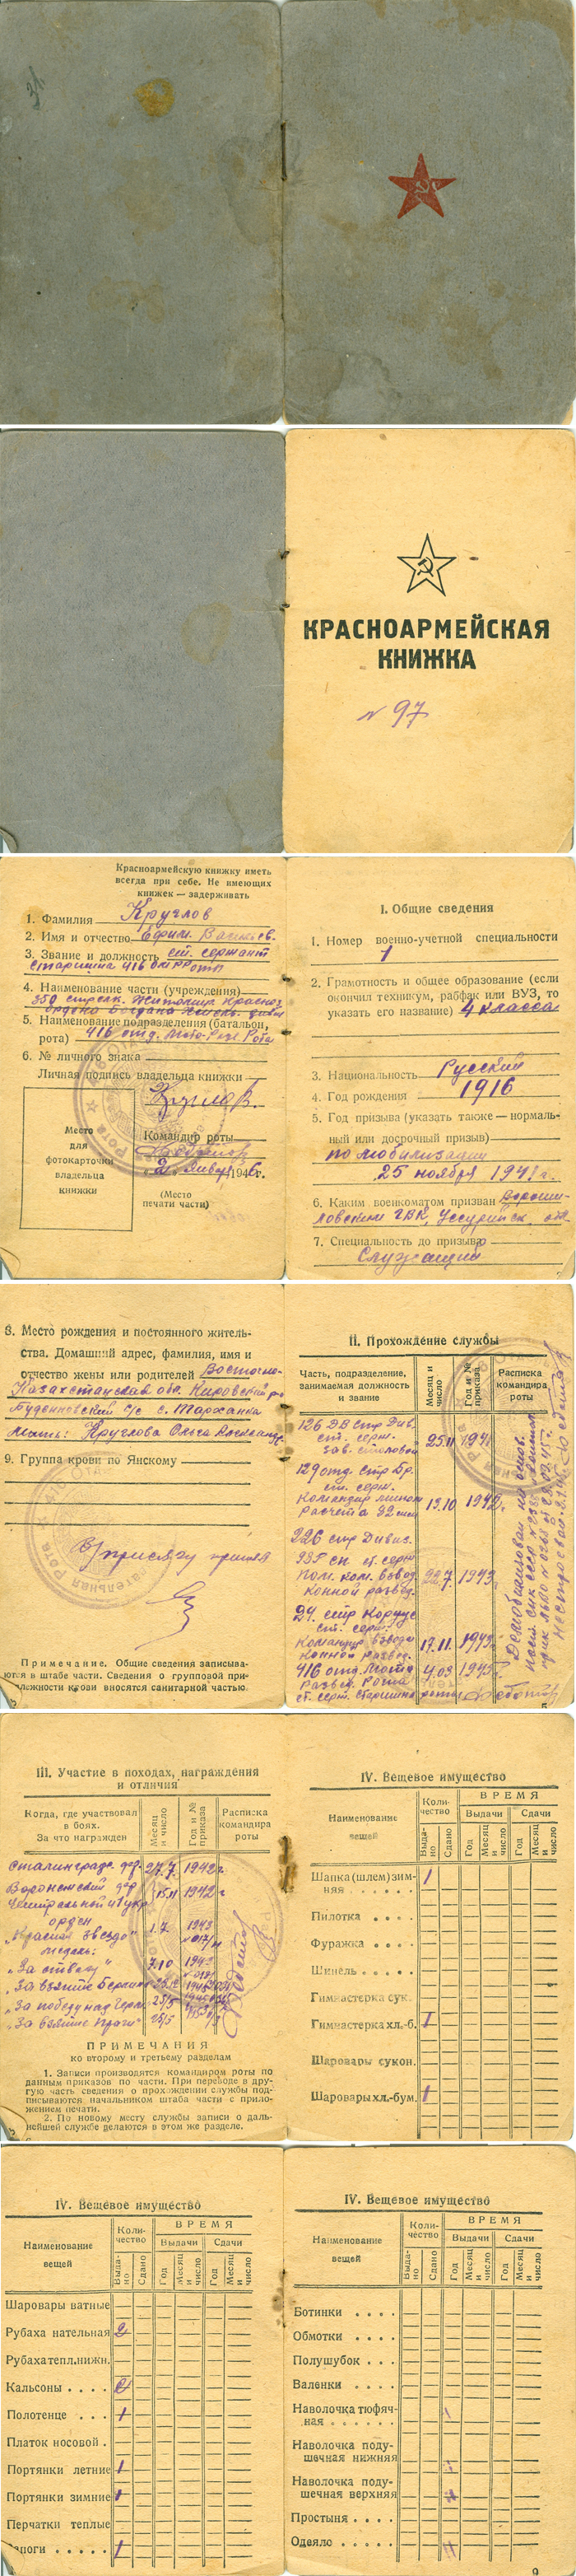 31.
КРАСНОАРМЕЙСКАЯ
КНИЖКА
N 97
Красноармейскую книжку иметь
всегда при себе. Не имеющих
книжек — задерживать
1. Фамилия Круглов
2. Имя и отчество Ефим
3. Звание и должность ст. сержант
Старшина 416
4. Наименование части (учреждения)
350 стрелк. Житомир. Красноз.
ордена Богдана
5. Наименование подразделения (батальон,
рота) 416 отд. Мото-Разв. Рота
6. № личного знака
Личная подпись владельца книжки
Место
для
фотокарточки
владельца
книжки
Командир роты
"2" Января 1946г.
(Место
печати части)
I. Общие сведения
1. Номер военно-учетной специальности
1
2. Грамотность и общее образование (если
окончил техникум, рабфак или ВУЗ, то
указать его название) 4 класса
3. Национальность Русский
4. Год рождения 1916
5. Год призыва (указать также — нормаль-
ный или досрочный призыв)
по мобилизации
25 ноября 1941 г.
6. Каким военкоматом призван Вороши-
ловским ГВК, Уссурийск. обл.
7. Специальность до призыва
Служащий
8. Место рождения и постоянного житель-
ства. Домашний адрес, фамилия, имя и
отчество жены или родителей Восточно-
Казахстанская обл. Кировский р-н
Буденновский с/с с. Тарханка
Мать: Круглова Ольга
9. Группа крови по Янскому
присягу принял
Примечание. Общие сведения записыва-
ются в штабе части. Сведения о групповой при-
надлежности крови вносятся санитарной частью.
II. Прохождение службы
Часть, подразделение,
занимаемая должность
и звание
Месяц и
число
Год и №
приказа
Расписка
командира
роты
126 ДВ Стр Див.
ст. серж.
Зав. столовой 25.11 1941
129 отд. Стр Бр.
ст. серж.
Командир мином
расчета 82 мм 13.10 1942г.
226 стр Дивиз.
985 сп ст. серж
Пом. ком. взвод.
конной развед. 22.7 1943г.
24. стр Корпус
ст. серж.
Командир взвода
конной развед. 17.11. 1943г.
416 отд. Мото
Развед. Рота 4.03 1945г.
ст. серж. Старшина роты
Демобилизован на основ.
III. Участие в походах, награждения
и отличия
Когда, где участвовал
в боях.
За что награжден
Месяц
и число
Год и №
приказа
Расписка
командира
роты
Сталинград. фр. 27.7. 1942г
Воронежский фр 1942г
Центральной и 1 укр
орден
"Красная Звезда" 1.7 1943
медаль:
"За отвагу" 7.10 1943
"За взятие Берлина"
"За победу над Герм. 25/5
"За взятие Праги" 25/5
ПРИМЕЧАНИЯ
ко второму и третьему разделам
1. Записи производятся командиром роты по
данным приказов по части. При переводе в дру-
гую часть сведения о прохождении службы под-
писываются начальником штаба части с прило-
жением печати.
2. По новому месту службы записи о даль-
нейшей службе делаются в этом же разделе.
IV. Вещевое имущество
Наименование
вещей
Коли-
чество
ВРЕМЯ
Выдачи Сдачи
Выда-
но
Сдано
Год
Месяц
и
число
Год
Месяц
и
число
Шапка (шлем) зим-
няя 1
Пилотка
Фуражка
Шинель
Гимнастерка сук.
Гимнастерка хл.-б. 1
Шаровары сукон.
Шаровары хл.-бум. 1
IV. Вещевое имущество
Наименование
вещей
Коли-
чество
ВРЕМЯ
Выдачи Сдачи
Выда-
но
Сдано
Год
Месяц
и
число
Год
Месяц
и
число
Шаровары ватные
Рубаха нательная 2
Рубаха тепл. нижн.
Кальсоны 2
Полотенце 1
Платок носовой
Портянки летние 1
Портянки зимние 1
Перчатки теплые
Сапоги 1
IV. Вещевое имущество
Наименование
вещей
Коли-
чество
ВРЕМЯ
Выдачи Сдачи
Выда-
но
Сдано
Год
Месяц
и
число
Год
Месяц
и
число
Ботинки
Обмотки
Полушубок
Валенки
Наволочка тюфяч-
ная
Наволочка поду-
шечная нижняя
Наволочка поду-
шечная верхняя
Простыня
Одеяло
9